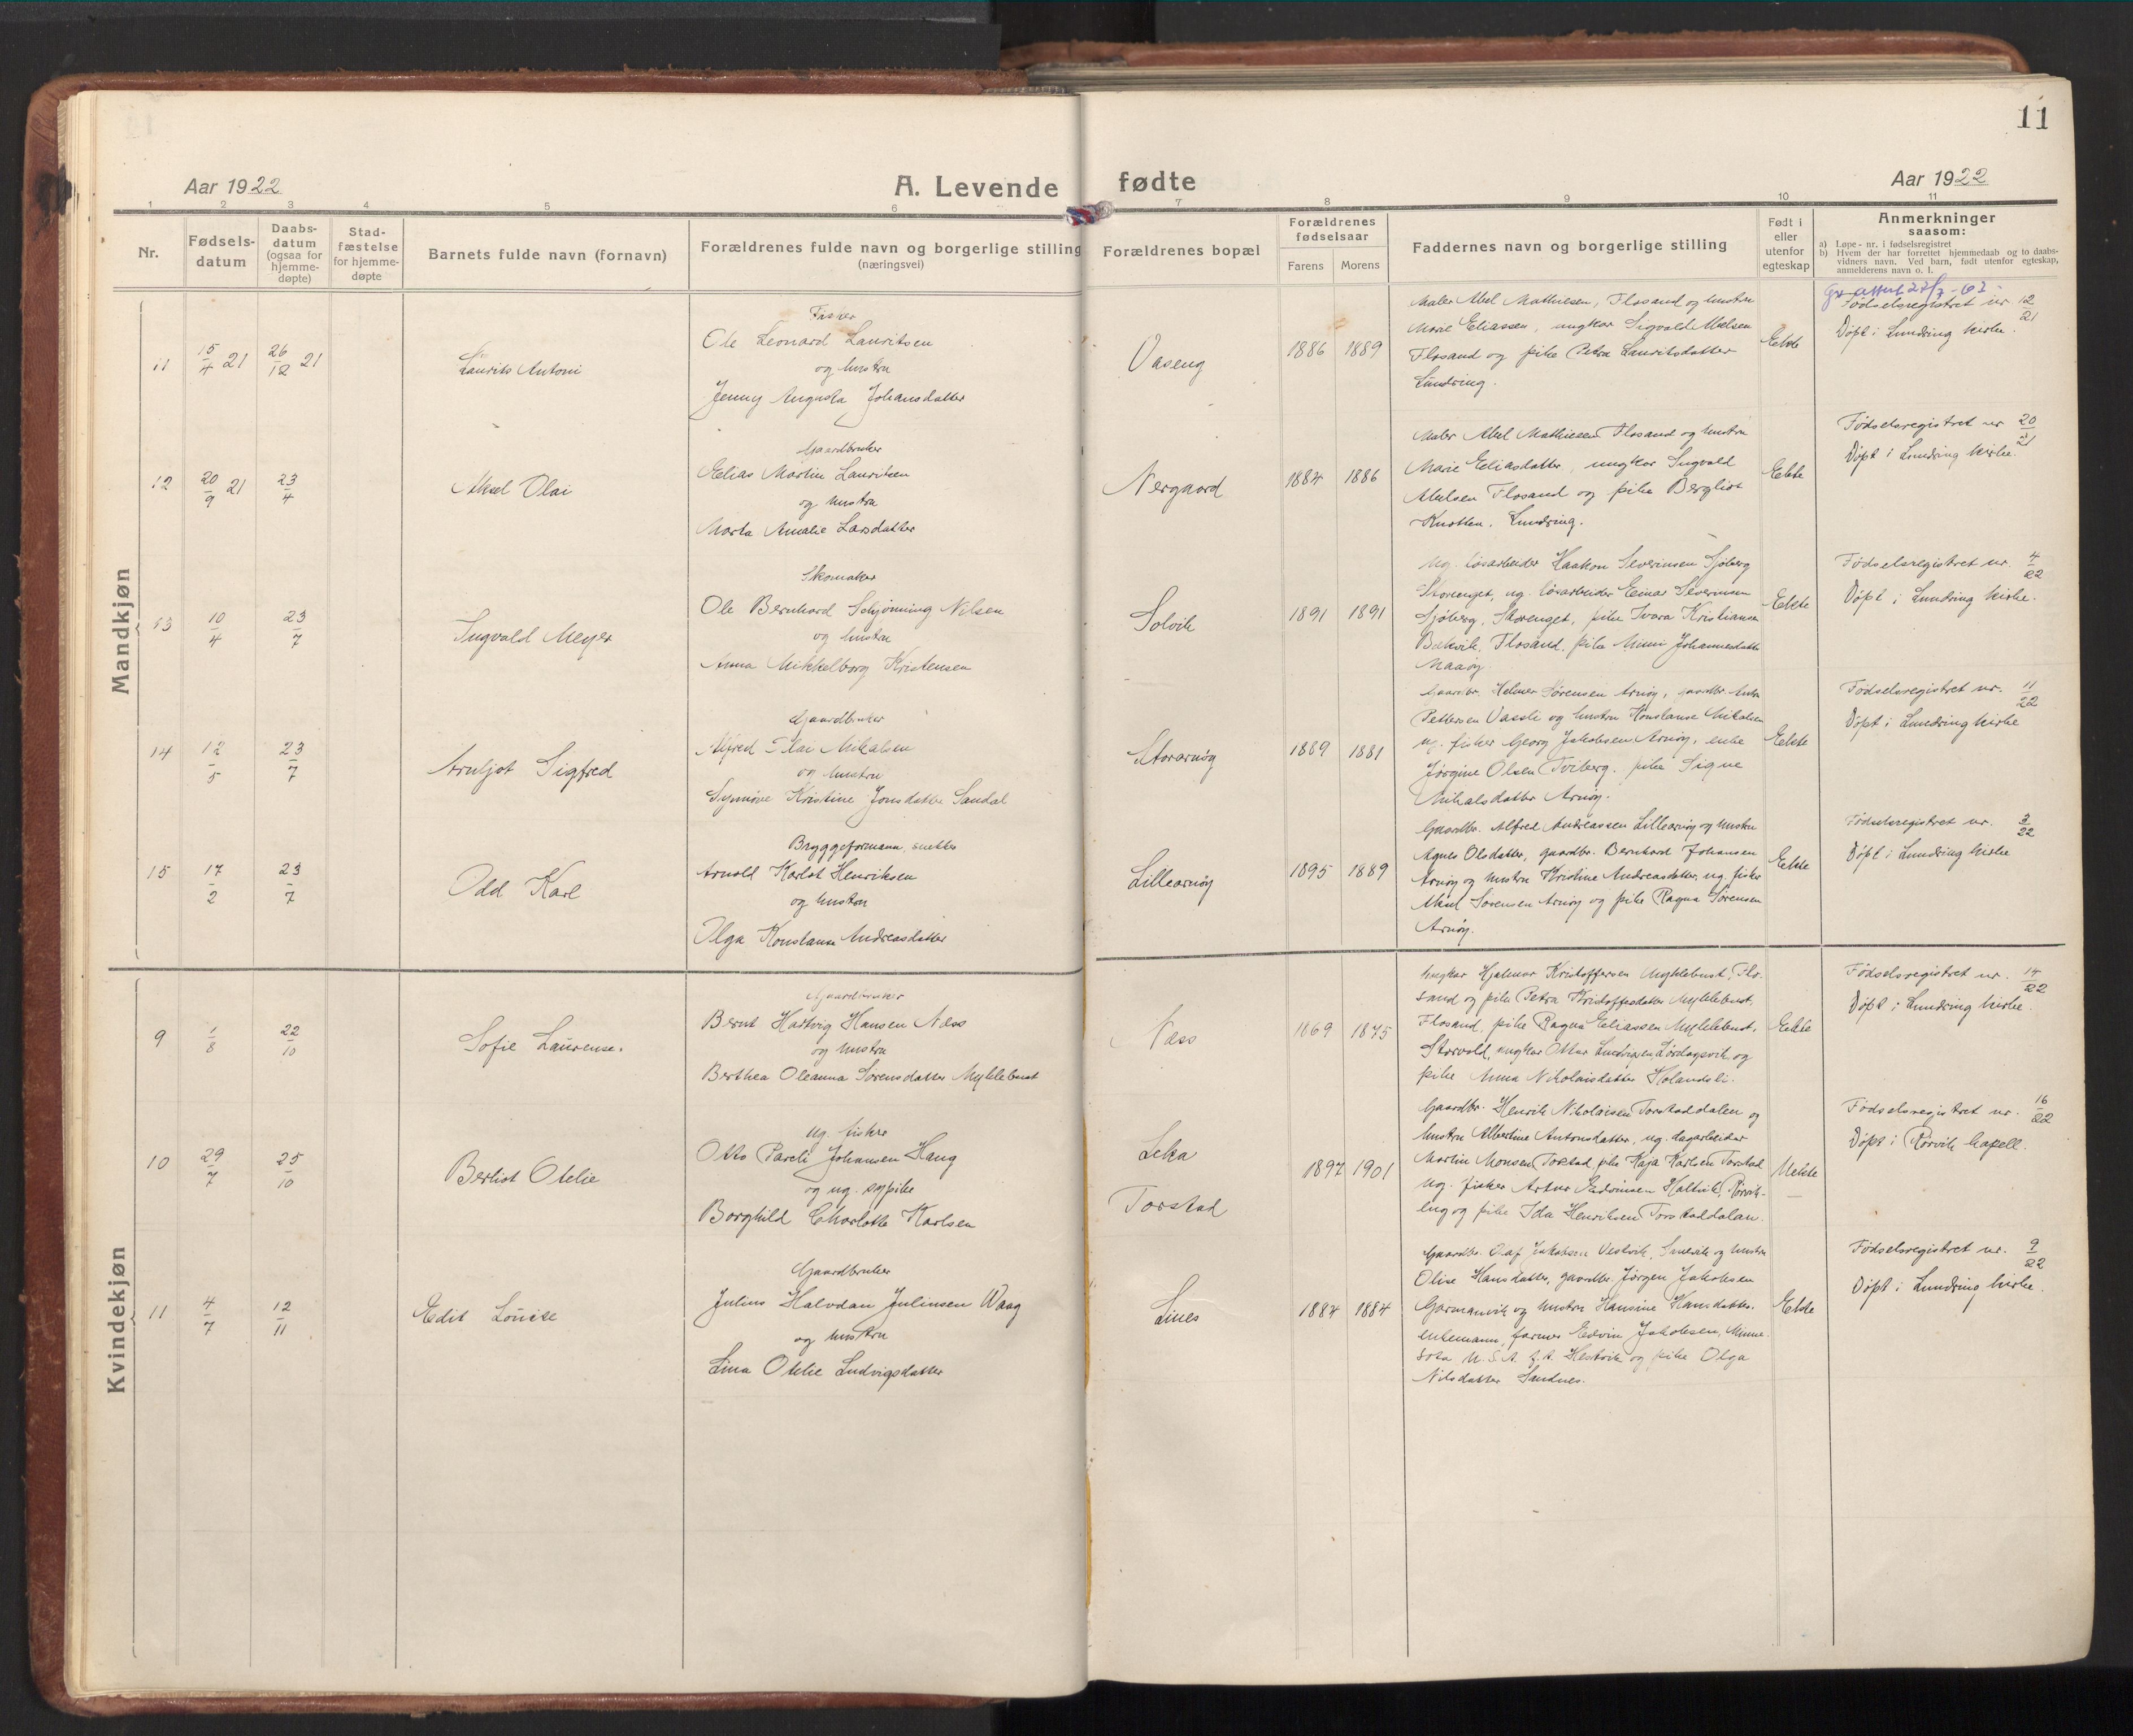 11
Aar 1922
A. Levende fødte
Aar 1922
1 2 3 4 5 6 7 8 9 10 11
Nr.
Fødsels-
datum
Daabs-
datum
(ogsaa for
hjemme-
døpte)
Stad-
fæstelse
for hjemme-
døpte
Barnets fulde navn (fornavn)
Forældrenes fulde navn og borgerlige stilling
(næringsvei)
Forældrenes bopæl
Forældrenes
fødselsaar
Farens Morens
Faddernes navn og borgerlige stilling
Født i
eller
utenfor
egteskap
Anmerkninger
saasom:
a) Løpe-nr. i fødselsregistret
b) Hvem der har forrettet hjemmedaab og to daabs-
vidners navn. Ved barn, født utenfor egteskap,
anmelderens navn o. l.
Mandkjøn
11
15/4 21
26/12 21
Laurits Antoni
Fisker
Ole Leonard Lauritsen
og hustru
Jenny Augusta Johansdatter
Vaseng
1886 1889
Maler Abel Mathiesen, Flosand og hustru
Marie Eliassen, ungkar Sigvald Abelsen
Flosand og pike Petra Lauritsdatter
Lundring.
Ekte
attest 27/7-62
Fødselsregistret nr 12/21
Døpt i Lundring kirke.
12
20/9 21
23/4
Aksel Olai
Gaardbruker
Elias Martin Lauritsen
og hustru
Marta Amalie Larsdatter
Nergaard
1884 1886
Maler Abel Mathiesen Flosand og hustru
Marie Eliasdatter, ungkar Sigvald
Abelsen Flosand og pike Bergliot
Knotten. Lundring.
Ekte
Fødselsregistret nr 20/21
Døpt i Lundring kirke.
13
10/4
23/7
Ingvald Meyer
Skomaker
Ole Bernhard Schjønning Nilsen
og hustru
Anna Mikkelborg Kristensen
Solvik
1891 1891
Ug. løsarbeider Haakon Severinsen Sjøberg
Storenget, ug. løsarbeider Einar Severinsen
Sjøberg, Storenget, pike Ivara Kristiansen
Bakvik, Flosand, pike Mimi Johannesdatter
Maaøy.
Ekte
Fødselsregistret nr. 4/22
Døpt i Lundring kirke.
14
12/5
23/7
Arnljot Sigfred
Gaardbruker
Alfred Olai Mikalsen
og hustru
Synnøve Kristine Jonsdatter Sandal
Storarnøy
1889 1881
Gaardbr. Helmer Sørensen Arnøy, gaardbr.
Pettersen Vassli og hustru Konstanse Mikalsen
ug. fisker Georg Jakobsen Arnøy, enke
Jørgine Olsen Tviberg. pike Signe
Mikalsdatter Arnøy.
Ekte
Fødselsregistret nr. 11/22
Døpt i Lundring kirke
15
17/2
23/7
Odd Karl
Bryggeformann, snekker
Arnold Karlot Henriksen
og hustru
Olga Konstanse Andreasdatter
Lillearnøy
1895 1889
Gaardbr. Alfred Andreassen Lillearnøy og hustru
Agnes Olsdatter, gaardbr. Bernhard Johansen
Arnøy og hustru Kristine Andreasdatter, ug. fisker
Sørensen Arnøy og pike Ragna Sørensen
Arnøy.
Ekte
Fødselsregistret nr. 3/22
Døpt i Lundring kirke
Kvindekjøn
9
1/8
22/10
Sofie Laurense.
Gaardbruker
Bernt Hartvig Hansen Næss
og hustru
Berthea Oleanna Sørensdatter Myklebust
Næss
1869 1875
Ungkar Hjalmar Kristoffersen Myklebust, Flo-
sand og pike Petra Kristoffersdatter Myklebust,
Flosand, pike Ragna Eliassen Myklebust,
Storvold, ungkar Ottar Ludviksen Lørdagsvik og
pike Anna Nikolaisdatter Holandsli.
Ekte
Fødselsregistret nr. 14/22
Døpt i Lundring kirke.
10
29/7
25/10
Berliot Otelie
Ug. fisker
Otto Pareli Johansen Haug
og ug. sypike
Borghild Charlotte Karlsen
Leka
Torstad
1897 1901
Gaardbr. Henrik Nikolaisen Torstaddalen og
hustru Albertine Antonsdatter, ug. dagarbeider
Martin Monsen Torstad, pike Kaja Karlsen Torstad
ug. fisker Artur Edvinsen Haltvik, Rørvik-
eng og pike Ida Henriksen Torstaddalen.
Uekte
Fødselsregistret nr. 16/22
Døpt i Rørvik kapell.
11
4/7
12/11
Edit Louise
Gaardbruker
Julius Halvdan Juliusen Waag
og hustru
Lina Otelie Ludvigsdatter
Lines
1884 1884
Gaardbr. Olaf Jakobsen Vestvik, og hustru
Olise Hansdatter, gaardbr. Jørgen Jakobsen
Garmannvik og hustru Hansine Hansdatter.
enkemann, farmer Edvin Jakobsen, Minne-
sota U.S.A. f.t. Hestvik og pike Olga
Nilsdatter Sandnes.
Ekte
Fødselsregistret nr. 9/22
Døpt i Lundring kirke.